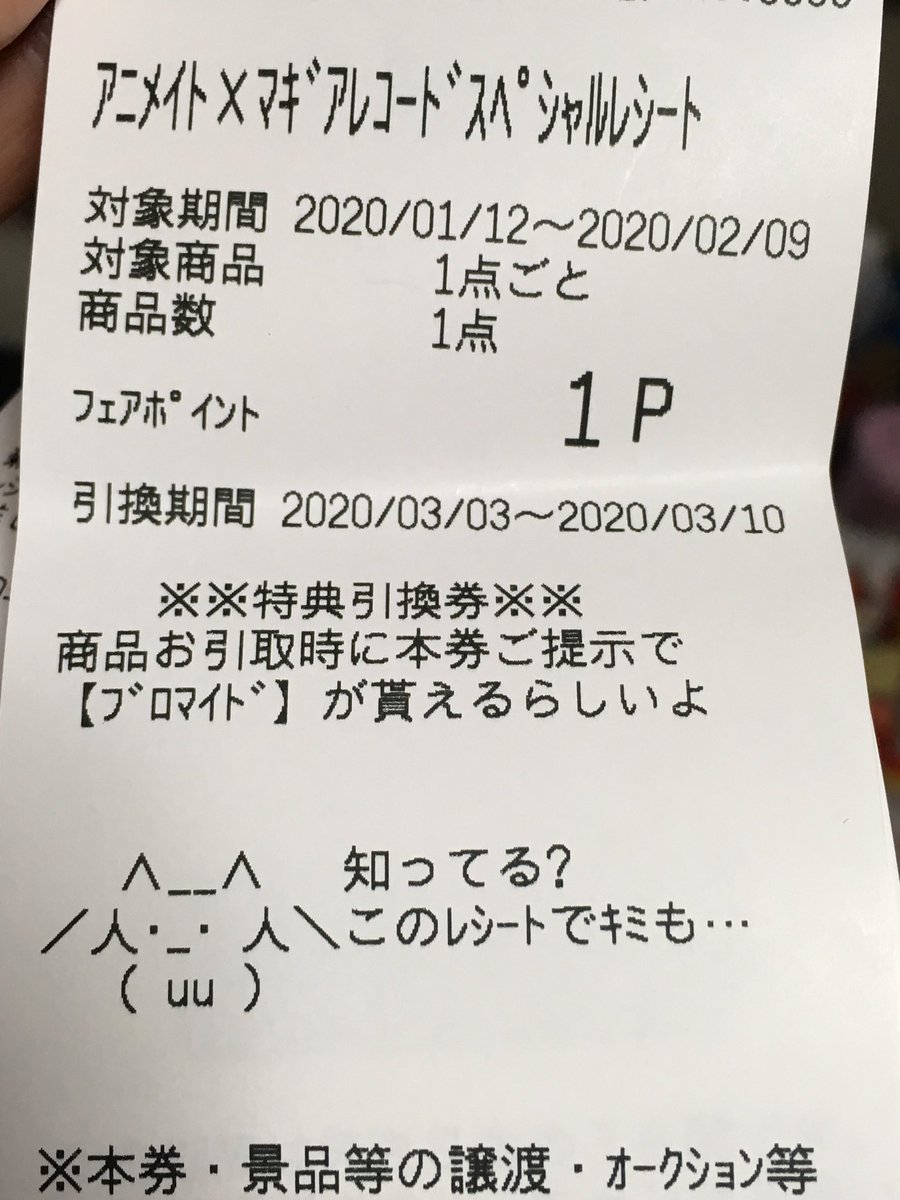 ｱﾆﾒｲﾄ×ﾏｷﾞｱﾚｺｰﾄﾞｽﾍﾟｼｬﾙﾚｼｰﾄ
対象期間 2020/01/12～2020/02/09
対象商品 1点ごと
商品数 1点
ﾌｪｱﾎﾟｲﾝﾄ 1P
引換期間 2020/03/03～2020/03/10
※※特典引換券※※
商品お引取時に本券ご提示で
【ﾌﾞﾛﾏｲﾄﾞ】が貰えるらしいよ
∧__∧ 知ってる?
／人･_･ 人＼このﾚｼｰﾄでｷﾐも…
( uu )
※本券・景品等の譲渡・ｵｰｸｼｮﾝ等